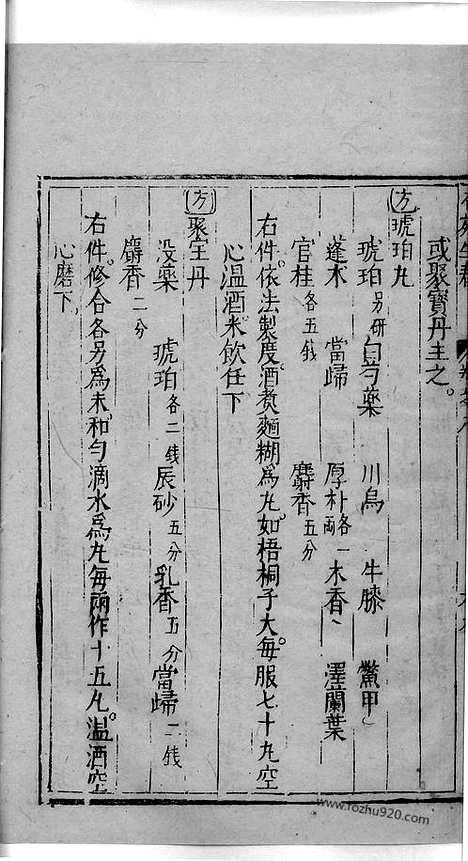 或聚寶丹主之。
方琥珀丸
琥珀另研 白芍藥 川烏 牛膝 鱉甲
蓬木 當歸 厚朴各一兩 木香 澤蘭葉
官桂各五錢 麝香五分
右件。依法製度。酒煑麵糊爲丸。如梧桐子大。每服七十丸空
心溫酒。米飲任下
方聚宝丹
没藥 琥珀各二錢 辰砂五分 乳香五分 當歸二錢
麝香二分
右件。修合各另爲末。和勻滴水爲丸每兩作十五丸。温酒空
心磨下。
www.fozhu920.com